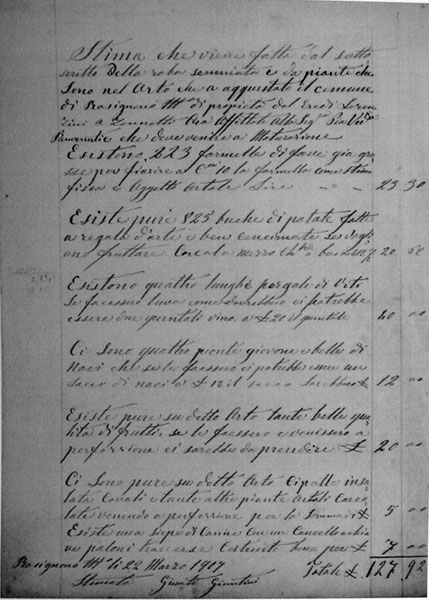 Stima che viene fatta dal sotto
scritto Della roba seminata e da piante che
Sono nel Orto che a aqquistato il comune
di Rosignano Mmo di propietà del Eredi
a Zannotto Via Affittato Alla Sigra Pia
che deve venire a
Esistono 223 formelle di fave gia gro
sse per fiorire a Cmi 10 la formella come stima
fissa e Aggetti Artale Lire - - 23 30
Esiste pure 825 buche di patate fatte
a regola d'arte e ben concimate se vogli
ono fruttare Cercata mezzo 20 62
Esistono quattro lunghe pergole di Viti
Se facessero l'uva come dovrebbero ci potrebbe
essere due quintali vino a £ 20 il quintale 40 00
Ci Sono quattro piante giovane e belle di
Noci che se le facessero ci potrebbe essere un
sacco di noci a £ 12 il sacco Sarebbero £ 12 00
Esiste pure su detto Orto tante belle qua
lità di frutti, se le facessero e venissero a
perfezzione ci sarebbe da prendire £ 20 00
Ci Sono pure su detto Orto Cipalle insa
late Cavali e tante altre piante Artali Calco
late venendo a perfezzione per la Somma di £ 5 00
Esiste una Siepe di Canne Con un Cancello
paloni traverse Costruite Sono per £ 7 00
Rosignano Mmo li 22 Marzo 1917 Totale £ 127 92
Stimato Giunti